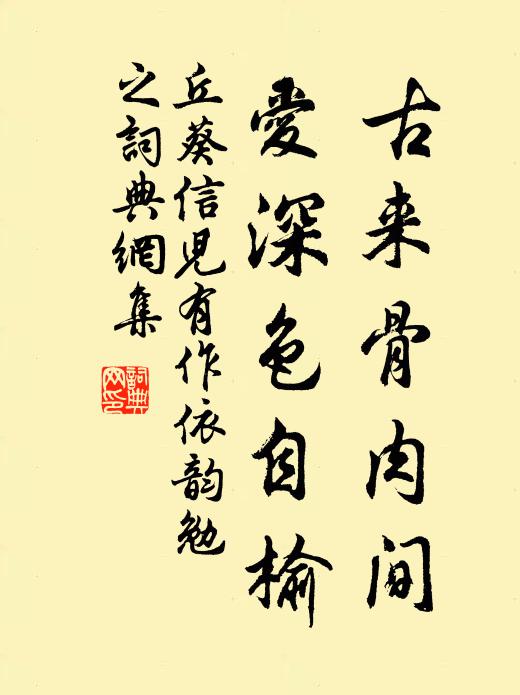 古来骨肉间
爱深色自榆
丘葵信儿有作依韵勉
之词典网集
词典网印